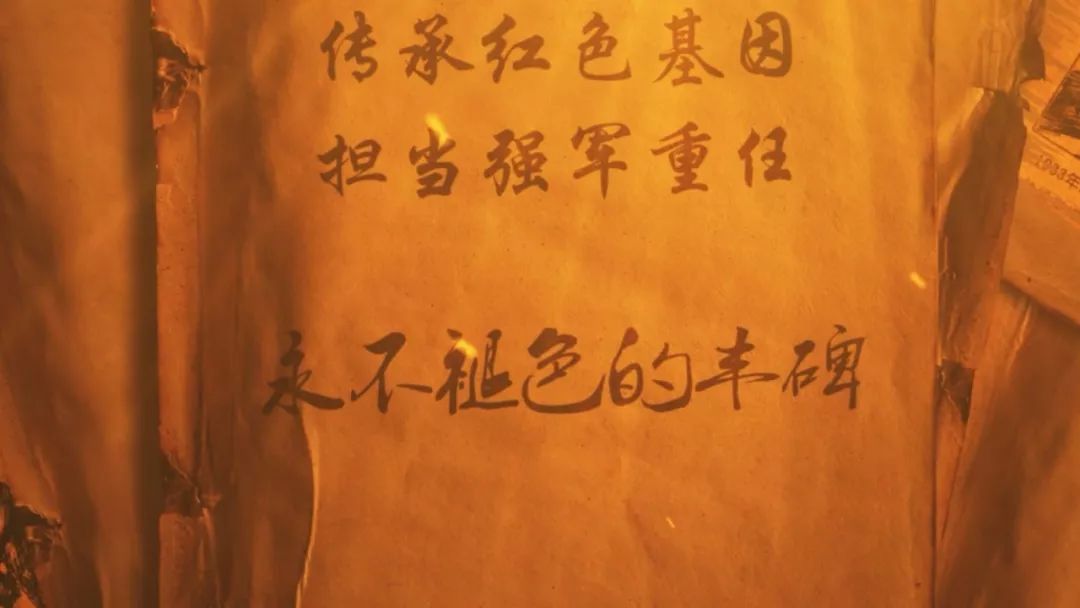 传承红色基因
担当强军重任
永不褪色的丰碑
1933年